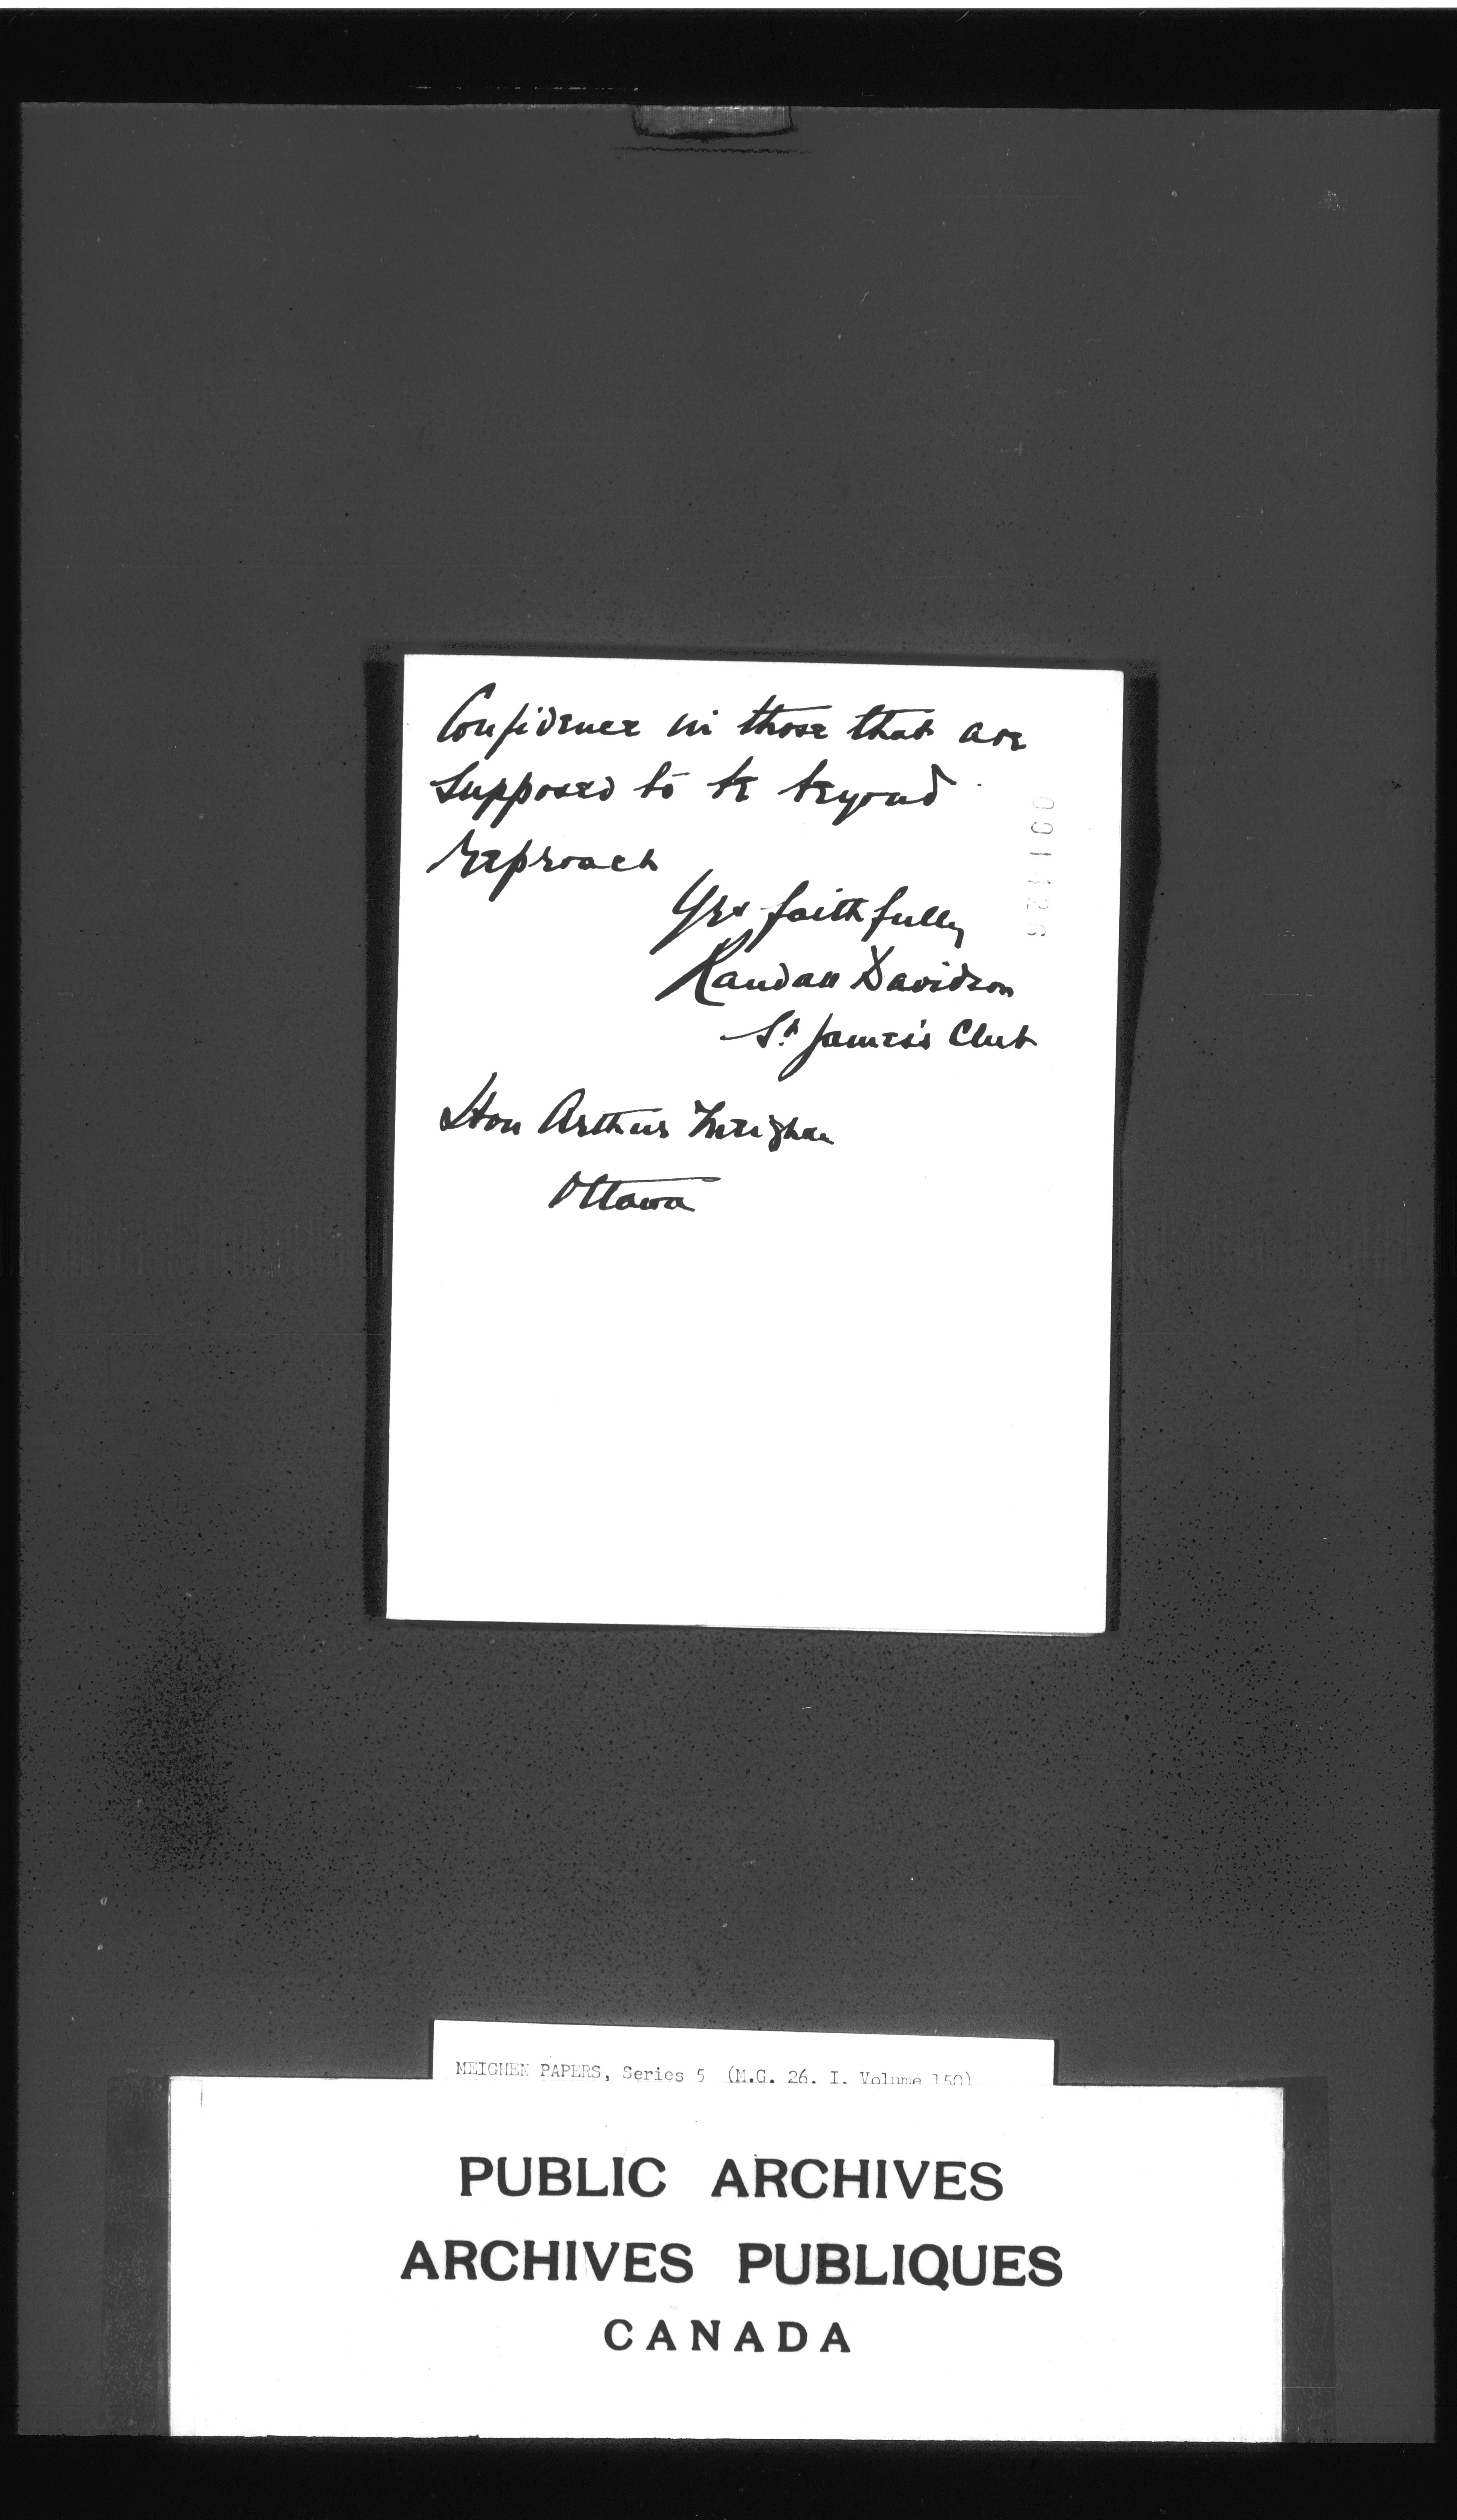 Confidence in those that are
supposed to be beyond
reproach
Yrs faithfully
Randall Davidson
St James's Club
Hon Arthur Meighen
Ottawa
MEIGHEN PAPERS, Series 5 (M.G. 26, I, Volume 150)
PUBLIC ARCHIVES
ARCHIVES PUBLIQUES
CANADA